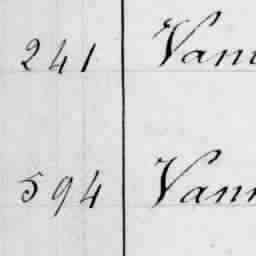 241 Van
594 Vann